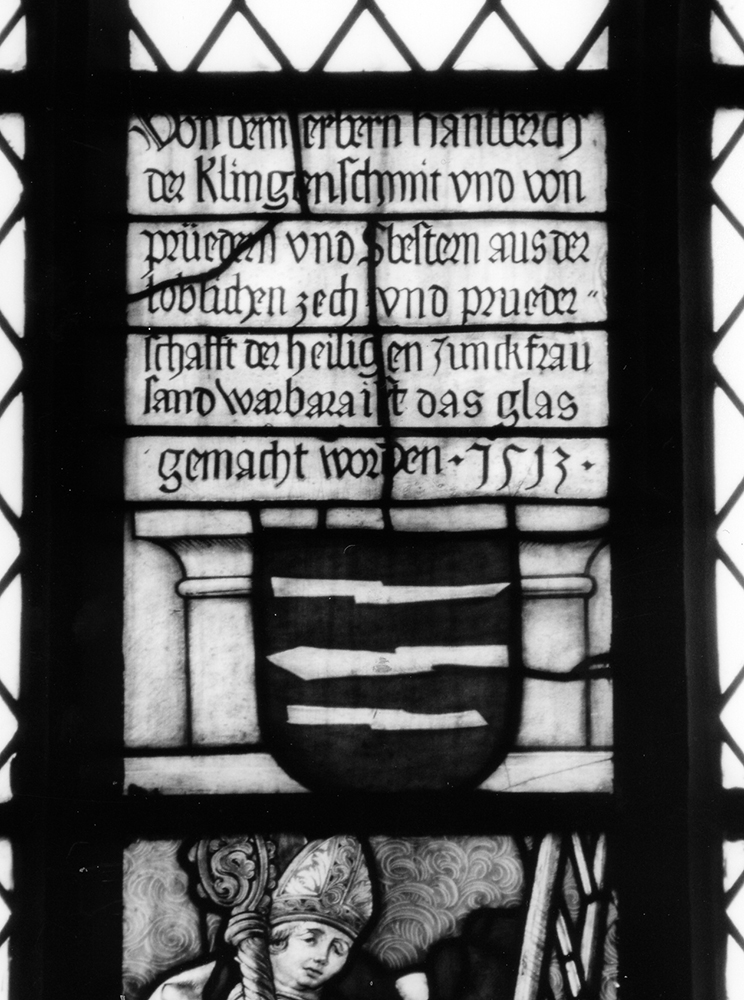 Von dem erbern Hantberch
der Klingenschmit vnd von
prüedern vnd Sbestern aus der
loblichen zech vnd prueder "
schafft der heiligen Junckfrau
sand Warbara ist das glas
gemacht worden · 1513 ·